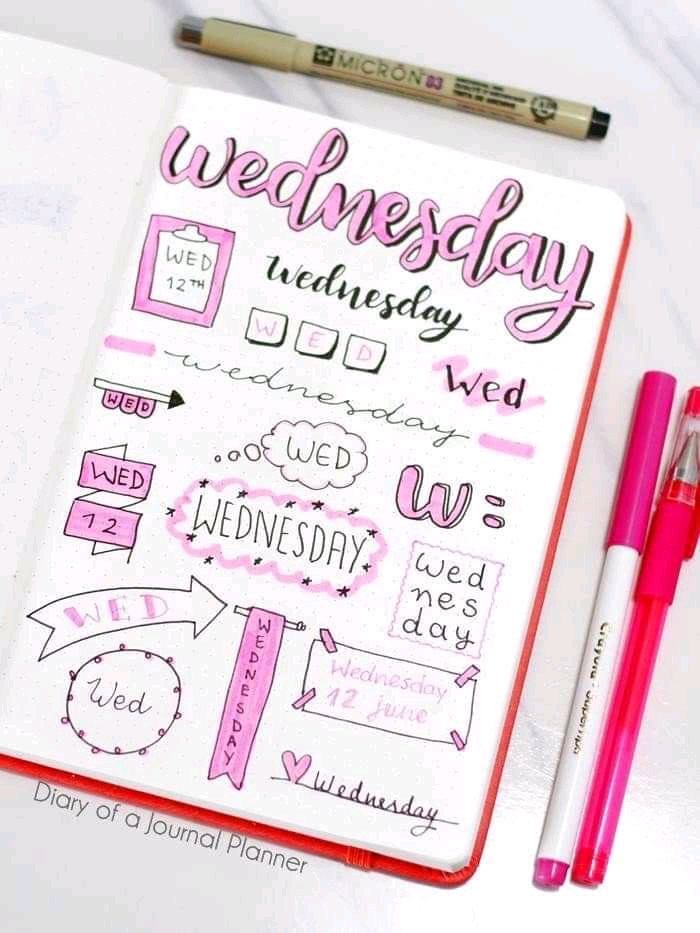 MICRON 03
wednesday
WED
12TH
wednesday
WED
wednesday
Wed
WED
WED
WED
12
WEDNESDAY
W:
wed
nes
day
WED
WEDNESDAY
Wednesday
12 june
Wed
Wednesday
Crayola Supertips
Diary of a Journal Planner